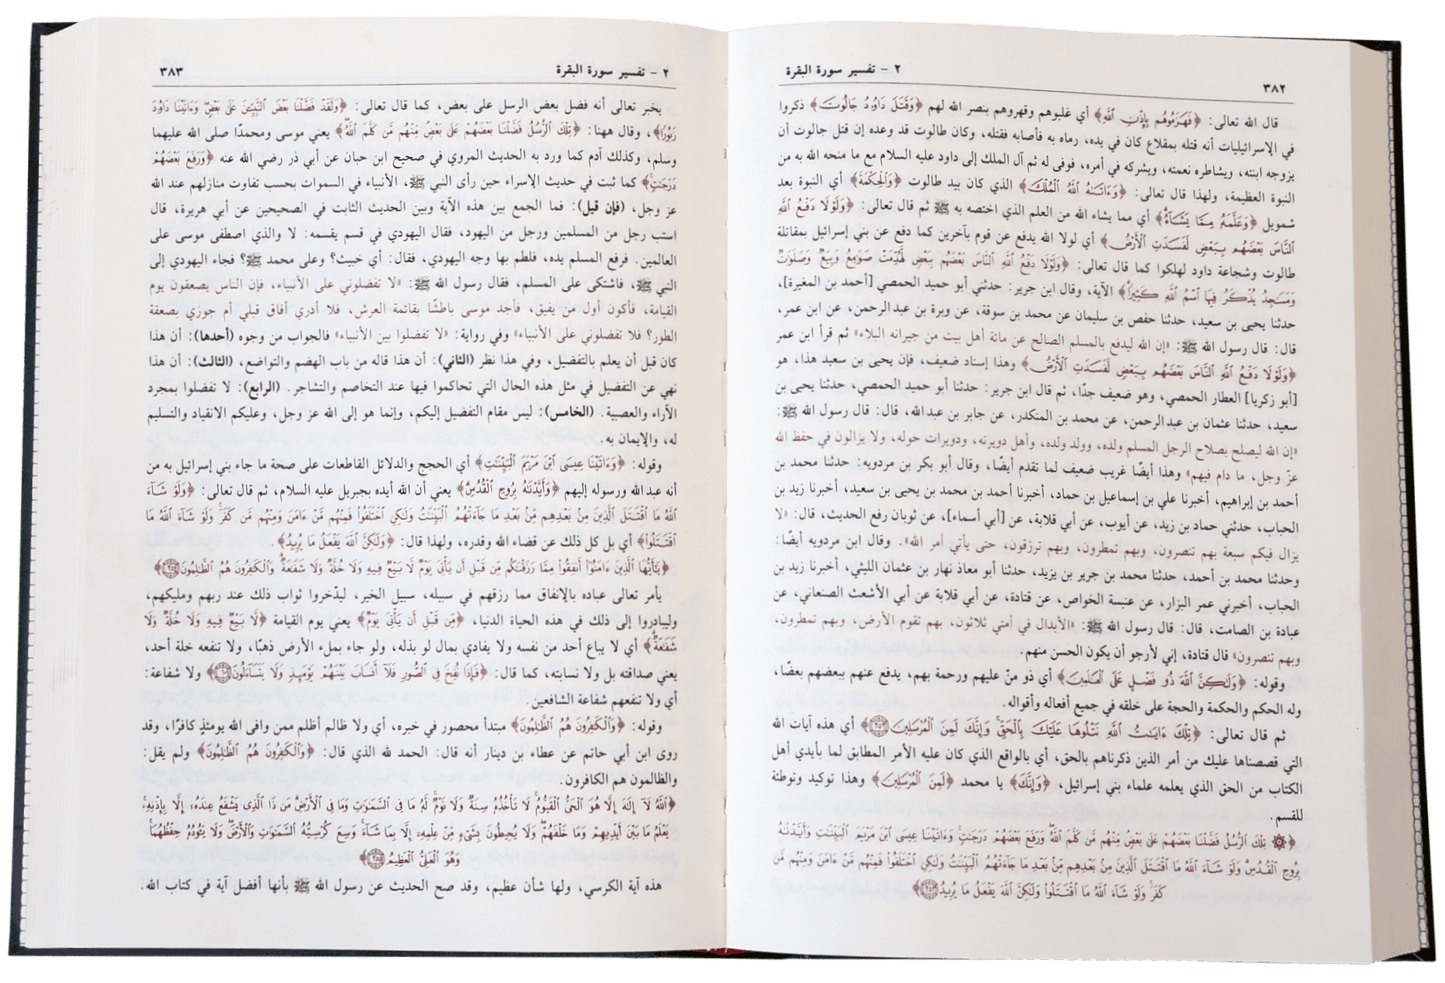 ٢ - تفسير سورة البقرة
٣٨٢
قال الله تعالى: ﴿فَهَزَمُوهُم بِإِذْنِ اللَّهِ﴾ أي غلبوهم وقهروهم بنصر الله لهم ﴿وَقَتَلَ دَاوُدُ جَالُوتَ﴾ ذكروا
في الإسرائيليات أنه قتله بمقلاع كان في يده، رماه به فأصابه فقتله، وكان طالوت قد وعده إن قتل جالوت أن
يزوجه ابنته، ويشاطره نعمته، ويشركه في أمره، فوفى له ثم آل الملك إلى داود عليه السلام مع ما منحه الله به من
النبوة العظيمة، ولهذا قال تعالى: ﴿وَءَاتَاهُ اللَّهُ الْمُلْكَ﴾ الذي كان بيد طالوت ﴿وَالْحِكْمَةَ﴾ أي النبوة بعد
شمويل ﴿وَعَلَّمَهُ مِمَّا يَشَاءُ﴾ أي مما يشاء الله من العلم الذي اختصه به ﷺ ثم قال تعالى: ﴿وَلَوْلَا دَفْعُ اللَّهِ
النَّاسَ بَعْضَهُم بِبَعْضٍ لَفَسَدَتِ الْأَرْضُ﴾ أي لولا الله يدفع عن قوم بآخرين كما دفع عن بني إسرائيل بمقاتلة
طالوت وشجاعة داود لهلكوا كما قال تعالى: ﴿وَلَوْلَا دَفْعُ اللَّهِ النَّاسَ بَعْضَهُم بِبَعْضٍ لَهُدِّمَتْ صَوَامِعُ وَبِيَعٌ وَصَلَوَاتٌ
وَمَسَاجِدُ يُذْكَرُ فِيهَا اسْمُ اللَّهِ كَثِيرًا﴾ الآية، وقال ابن جرير: حدثني أبو حميد الحمصي [أحمد بن المغيرة]،
حدثنا يحيى بن سعيد، حدثنا حفص بن سليمان عن محمد بن سوقة، عن وبرة بن عبد الرحمن، عن ابن عمر،
قال: قال رسول الله ﷺ: «إن الله ليدفع بالمسلم الصالح عن مائة أهل بيت من جيرانه البلاء» ثم قرأ ابن عمر
﴿وَلَوْلَا دَفْعُ اللَّهِ النَّاسَ بَعْضَهُم بِبَعْضٍ لَفَسَدَتِ الْأَرْضُ﴾ وهذا إسناد ضعيف، فإن يحيى بن سعيد هذا، هو
[أبو زكريا] العطار الحمصي، وهو ضعيف جدًا، ثم قال ابن جرير: حدثنا أبو حميد الحمصي، حدثنا يحيى بن
سعيد، حدثنا عثمان بن عبد الرحمن، عن محمد بن المنكدر، عن جابر بن عبدالله، قال: قال رسول الله ﷺ:
«إن الله ليصلح بصلاح الرجل المسلم ولده، وولد ولده، وأهل دويرته، ودويرات حوله، ولا يزالون في حفظ الله
عزّ وجل، ما دام فيهم» وهذا أيضًا غريب ضعيف لما تقدم أيضًا، وقال أبو بكر بن مردويه: حدثنا محمد بن
أحمد بن إبراهيم، أخبرنا علي بن إسماعيل بن حماد، أخبرنا أحمد بن محمد بن يحيى بن سعيد، أخبرنا زيد بن
الحباب، حدثني حماد بن زيد، عن أيوب، عن أبي قلابة، عن [أبي أسماء]، عن ثوبان رفع الحديث، قال: «لا
يزال فيكم سبعة بهم تنصرون، وبهم تمطرون، وبهم ترزقون، حتى يأتي أمر الله». وقال ابن مردويه أيضًا:
وحدثنا محمد بن أحمد، حدثنا محمد بن جرير بن يزيد، حدثنا أبو معاذ نهار بن عثمان الليثي، أخبرنا زيد بن
الحباب، أخبرني عمر البزار، عن عنبسة الخواص، عن قتادة، عن أبي قلابة عن أبي الأشعث الصنعاني، عن
عبادة بن الصامت، قال: قال رسول الله ﷺ: «الأبدال في أمتي ثلاثون، بهم تقوم الأرض، وبهم تمطرون،
وبهم تنصرون» قال قتادة، إني لأرجو أن يكون الحسن منهم.
وقوله: ﴿وَلَكِنَّ اللَّهَ ذُو فَضْلٍ عَلَى الْعَالَمِينَ﴾ أي ذو منّ عليهم ورحمة بهم، يدفع عنهم ببعضهم بعضًا،
وله الحكم والحكمة والحجة على خلقه في جميع أفعاله وأقواله.
ثم قال تعالى: ﴿تِلْكَ ءَايَاتُ اللَّهِ نَتْلُوهَا عَلَيْكَ بِالْحَقِّ وَإِنَّكَ لَمِنَ الْمُرْسَلِينَ ٢٥٢﴾ أي هذه آيات الله
التي قصصناها عليك من أمر الذين ذكرناهم بالحق، أي بالواقع الذي كان عليه الأمر المطابق لما بأيدي أهل
الكتاب من الحق الذي يعلمه علماء بني إسرائيل، ﴿وَإِنَّكَ﴾ يا محمد ﴿لَمِنَ الْمُرْسَلِينَ﴾ وهذا توكيد وتوطئة
للقسم.
﴿۞ تِلْكَ الرُّسُلُ فَضَّلْنَا بَعْضَهُمْ عَلَى بَعْضٍ مِنْهُم مَّن كَلَّمَ اللَّهُ وَرَفَعَ بَعْضَهُمْ دَرَجَاتٍ وَءَاتَيْنَا عِيسَى ابْنَ مَرْيَمَ الْبَيِّنَاتِ وَأَيَّدْنَاهُ
بِرُوحِ الْقُدُسِ وَلَوْ شَاءَ اللَّهُ مَا اقْتَتَلَ الَّذِينَ مِن بَعْدِهِم مِّن بَعْدِ مَا جَاءَتْهُمُ الْبَيِّنَاتُ وَلَكِنِ اخْتَلَفُوا فَمِنْهُم مَّنْ ءَامَنَ وَمِنْهُم مَّن
كَفَرَ وَلَوْ شَاءَ اللَّهُ مَا اقْتَتَلُوا وَلَكِنَّ اللَّهَ يَفْعَلُ مَا يُرِيدُ ٢٥٣﴾
٢ - تفسير سورة البقرة
٣٨٣
يخبر تعالى أنه فضل بعض الرسل على بعض، كما قال تعالى: ﴿وَلَقَدْ فَضَّلْنَا بَعْضَ النَّبِيِّينَ عَلَى بَعْضٍ وَءَاتَيْنَا دَاوُدَ
زَبُورًا﴾، وقال ههنا: ﴿تِلْكَ الرُّسُلُ فَضَّلْنَا بَعْضَهُمْ عَلَى بَعْضٍ مِنْهُم مَّن كَلَّمَ اللَّهُ﴾ يعني موسى ومحمدًا صلى الله عليهما
وسلم، وكذلك آدم كما ورد به الحديث المروي في صحيح ابن حبان عن أبي ذر رضي الله عنه ﴿وَرَفَعَ بَعْضَهُمْ
دَرَجَاتٍ﴾ كما ثبت في حديث الإسراء حين رأى النبي ﷺ، الأنبياء في السموات بحسب تفاوت منازلهم عند الله
عز وجل، (فإن قيل): فما الجمع بين هذه الآية وبين الحديث الثابت في الصحيحين عن أبي هريرة، قال
استب رجل من المسلمين ورجل من اليهود، فقال اليهودي في قسم يقسمه: لا والذي اصطفى موسى على
العالمين. فرفع المسلم يده، فلطم بها وجه اليهودي، فقال: أي خبيث؟ وعلى محمد ﷺ؟ فجاء اليهودي إلى
النبي ﷺ، فاشتكى على المسلم، فقال رسول الله ﷺ: «لا تفضلوني على الأنبياء، فإن الناس يصعقون يوم
القيامة، فأكون أول من يفيق، فأجد موسى باطشًا بقائمة العرش، فلا أدري أفاق قبلي أم جوزي بصعقة
الطور؟ فلا تفضلوني على الأنبياء» وفي رواية: «لا تفضلوا بين الأنبياء» فالجواب من وجوه (أحدها): أن هذا
كان قبل أن يعلم بالتفضيل، وفي هذا نظر (الثاني): أن هذا قاله من باب الهضم والتواضع، (الثالث): أن هذا
نهي عن التفضيل في مثل هذه الحال التي تحاكموا فيها عند التخاصم والتشاجر. (الرابع): لا تفضلوا بمجرد
الآراء والعصبية. (الخامس): ليس مقام التفضيل إليكم، وإنما هو إلى الله عز وجل، وعليكم الانقياد والتسليم
له، والإيمان به.
وقوله: ﴿وَءَاتَيْنَا عِيسَى ابْنَ مَرْيَمَ الْبَيِّنَاتِ﴾ أي الحجج والدلائل القاطعات على صحة ما جاء بني إسرائيل به من
أنه عبد الله ورسوله إليهم ﴿وَأَيَّدْنَاهُ بِرُوحِ الْقُدُسِ﴾ يعني أن الله أيده بجبريل عليه السلام، ثم قال تعالى: ﴿وَلَوْ شَاءَ
اللَّهُ مَا اقْتَتَلَ الَّذِينَ مِنْ بَعْدِهِم مِّن بَعْدِ مَا جَاءَتْهُمُ الْبَيِّنَاتُ وَلَكِنِ اخْتَلَفُوا فَمِنْهُم مَّنْ ءَامَنَ وَمِنْهُم مَّن كَفَرَ وَلَوْ شَاءَ اللَّهُ مَا
اقْتَتَلُوا﴾ أي بل كل ذلك عن قضاء الله وقدره، ولهذا قال: ﴿وَلَكِنَّ اللَّهَ يَفْعَلُ مَا يُرِيدُ﴾.
﴿يَأَيُّهَا الَّذِينَ ءَامَنُوا أَنفِقُوا مِمَّا رَزَقْنَاكُم مِّن قَبْلِ أَن يَأْتِيَ يَوْمٌ لَا بَيْعٌ فِيهِ وَلَا خُلَّةٌ وَلَا شَفَاعَةٌ وَالْكَافِرُونَ هُمُ الظَّالِمُونَ ٢٥٤﴾
يأمر تعالى عباده بالإنفاق مما رزقهم في سبيله، سبيل الخير، ليدّخروا ثواب ذلك عند ربهم ومليكهم،
وليبادروا إلى ذلك في هذه الحياة الدنيا، ﴿مِّن قَبْلِ أَن يَأْتِيَ يَوْمٌ﴾ يعني يوم القيامة ﴿لَا بَيْعٌ فِيهِ وَلَا خُلَّةٌ وَلَا
شَفَاعَةٌ﴾ أي لا يباع أحد من نفسه ولا يفادي بمال لو بذله، ولو جاء بملء الأرض ذهبًا، ولا تنفعه خلة أحد،
يعني صداقته بل ولا نسابته، كما قال: ﴿فَإِذَا نُفِخَ فِي الصُّورِ فَلَا أَنسَابَ بَيْنَهُمْ يَوْمَئِذٍ وَلَا يَتَسَاءَلُونَ﴾ ولا شفاعة:
أي ولا تنفعهم شفاعة الشافعين.
وقوله: ﴿وَالْكَافِرُونَ هُمُ الظَّالِمُونَ﴾ مبتدأ محصور في خبره، أي ولا ظالم أظلم ممن وافى الله يومئذٍ كافرًا، وقد
روى ابن أبي حاتم عن عطاء بن دينار أنه قال: الحمد لله الذي قال: ﴿وَالْكَافِرُونَ هُمُ الظَّالِمُونَ﴾ ولم يقل:
والظالمون هم الكافرون.
﴿اللَّهُ لَا إِلَهَ إِلَّا هُوَ الْحَيُّ الْقَيُّومُ لَا تَأْخُذُهُ سِنَةٌ وَلَا نَوْمٌ لَّهُ مَا فِي السَّمَاوَاتِ وَمَا فِي الْأَرْضِ مَن ذَا الَّذِي يَشْفَعُ عِندَهُ إِلَّا بِإِذْنِهِ
يَعْلَمُ مَا بَيْنَ أَيْدِيهِمْ وَمَا خَلْفَهُمْ وَلَا يُحِيطُونَ بِشَيْءٍ مِّنْ عِلْمِهِ إِلَّا بِمَا شَاءَ وَسِعَ كُرْسِيُّهُ السَّمَاوَاتِ وَالْأَرْضَ وَلَا يَئُودُهُ حِفْظُهُمَا
وَهُوَ الْعَلِيُّ الْعَظِيمُ ٢٥٥﴾
هذه آية الكرسي، ولها شأن عظيم، وقد صح الحديث عن رسول الله ﷺ بأنها أفضل آية في كتاب الله.